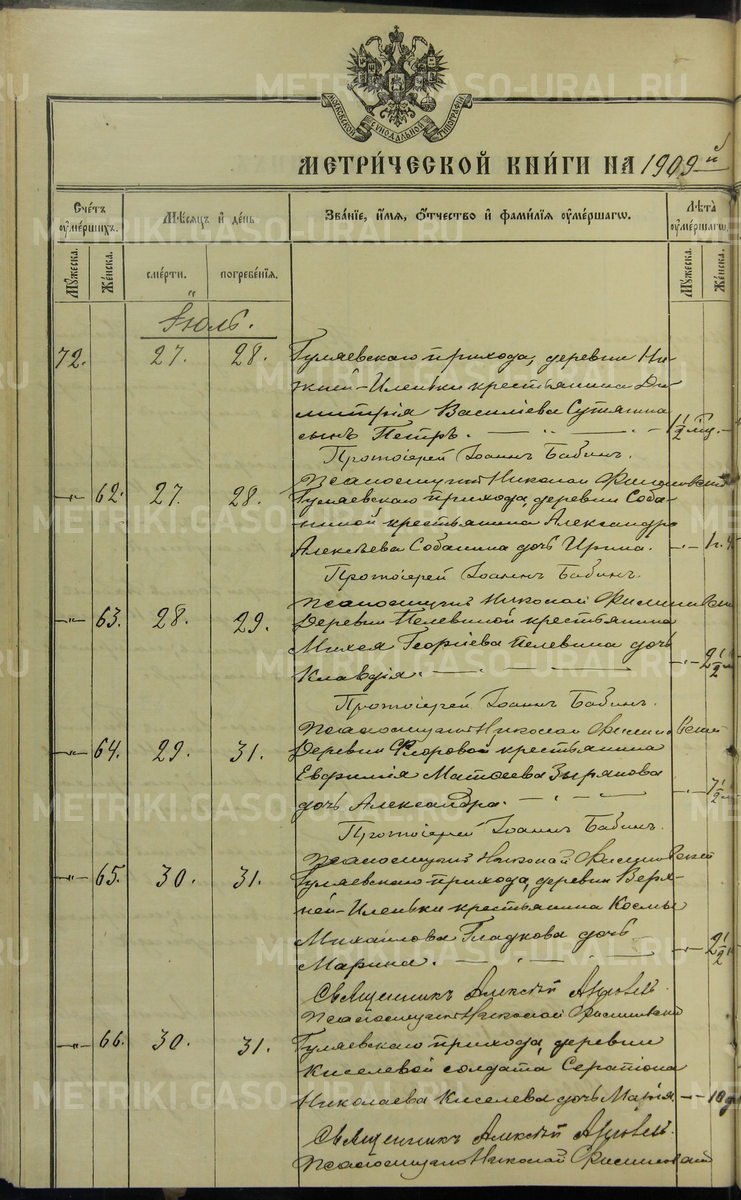 МОСКОВСКОЙ СУНОДАЛЬНОЙ ТИПОГРАФІИ
МЕТРИ́ЧЕСКОЙ КНИ́ГИ НА 1909й
Счетъ оумершихъ.
Мѣсяцъ и день
Званіе, имя, отчество и фамилія оумершагѡ.
Лѣта оумершагѡ.
Мужеска.
Женска.
смерти.
погребенія.
Мужеска.
Женска.
Іюль.
72. 27. 28. Гуляевскаго прихода, деревни Ни-
жней-Иленьки крестьянина Ди-
митрія Васильева Сутягина
сынъ Петръ. 1 1/2 мѣс.
Протоіерей Іоаннъ Бабинъ.
Псаломщикъ Николай
62. 27. 28. Гуляевскаго прихода, деревни Соба-
ниной крестьянина Александра
Алексѣева Собанина дочь Ирина. 1 г.
Протоіерей Іоаннъ Бабинъ.
Псаломщикъ Николай
63. 28. 29. Деревни Пелевиной крестьянина
Михея Георгіева Пелевина дочь
Клавдія. 2 1/2
Протоіерей Іоаннъ Бабинъ.
Псаломщикъ Николай
64. 29. 31. Деревни Фроровой крестьянина
Евфимія Матѳеева Зырянова
дочь Александра. 7 1/2
Протоіерей Іоаннъ Бабинъ.
Псаломщикъ Николай
65. 30. 31. Гуляевскаго прихода, деревни Верх-
ней-Иленьки крестьянина Космы
Михайлова Гладкова дочь
Марина. 2 1/2
Священникъ Алексѣй
Псаломщикъ Николай
66. 30. 31. Гуляевскаго прихода, деревни
Киселевой солдата Серапіона
Николаева Киселева дочь Марія 10
Священникъ Алексѣй
Псаломщикъ Николай
METRIKI.GASO-URAL.RU